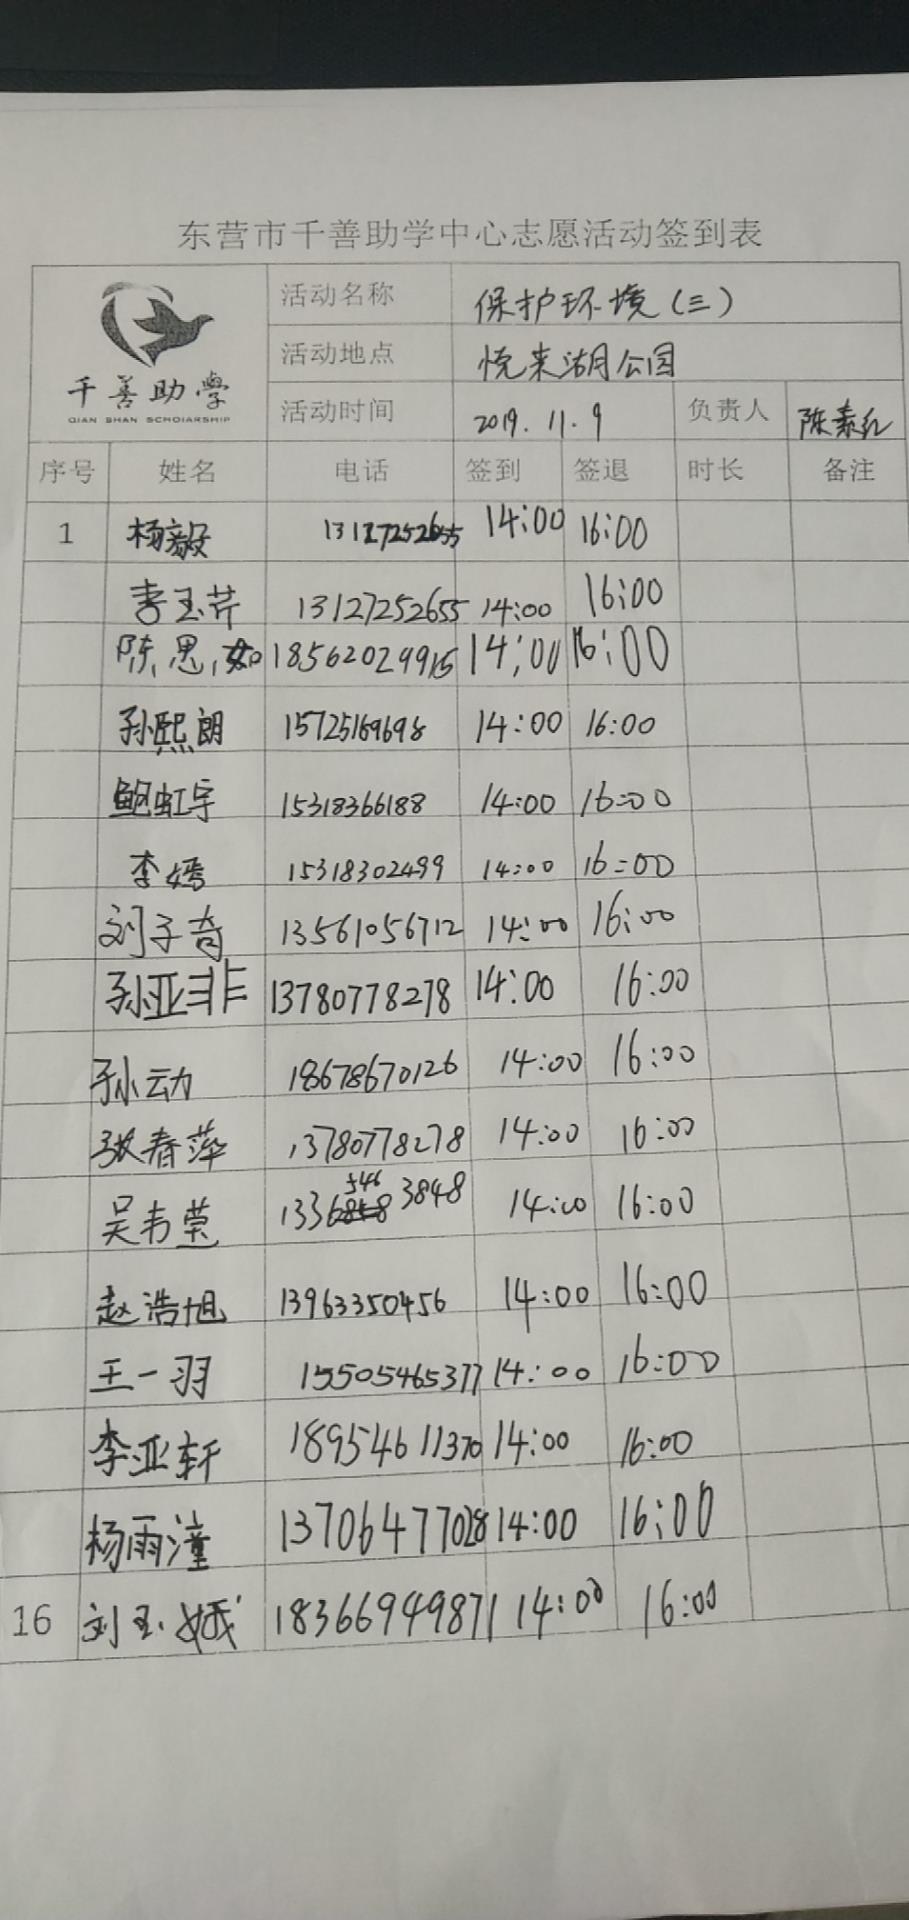 东营市千善助学中心志愿活动签到表
千善助學
QIAN SHAN SCHOIARSHIP
活动名称 保护环境(三)
活动地点 悦来湖公园
活动时间 2019.11.9 负责人 陈素红
序号 姓名 电话 签到 签退 时长 备注
1 杨毅 13127252655 14:00 16:00
李玉芹 13127252655 14:00 16:00
陈思如 18562029915 14:00 16:00
孙熙朗 15725169698 14:00 16:00
鲍虹宇 15318366188 14:00 16:00
李嫣 15318302499 14:00 16:00
刘子奇 13561056712 14:00 16:00
孙亚非 13780778278 14:00 16:00
孙云动 18678670126 14:00 16:00
张春萍 13780778278 14:00 16:00
吴韦莹 13365463848 14:00 16:00
赵浩旭 13963350456 14:00 16:00
王一羽 15505465377 14:00 16:00
李亚轩 18954611370 14:00 16:00
杨雨潼 13706477028 14:00 16:00
16 刘玉娥 18366949871 14:00 16:00